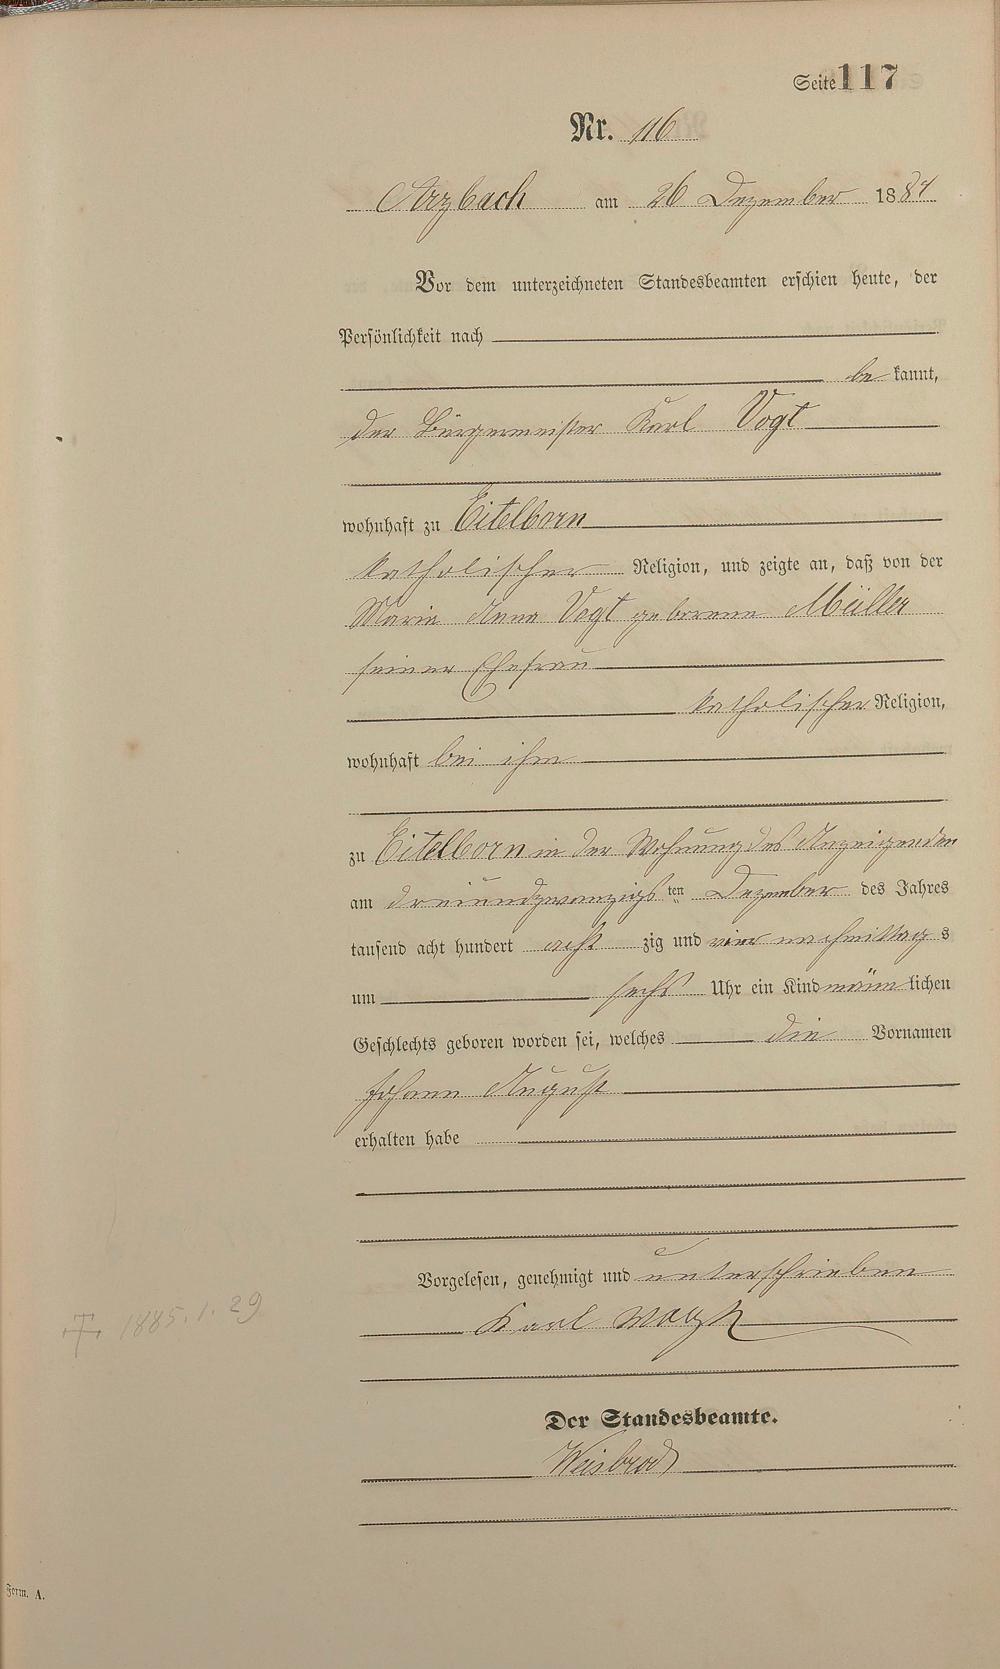 Seite 117
Nr. 116
Arzbach am 26 Dezember 1884
Vor dem unterzeichneten Standesbeamten erschien heute, der
Persönlichkeit nach
be kannt,
der Bürgermeister Karl Vogt
wohnhaft zu Eitelborn
katholischer Religion, und zeigte an, daß von der
Maria Anna Vogt geborene Müller
seiner Ehefrau
katholischer Religion,
wohnhaft bei ihm
zu Eitelborn in der Wohnung des Anzeigenden
am dreiundzwanzigsten Dezember des Jahres
tausend acht hundert acht zig und vier nachmittags
um sechs Uhr ein Kind männlichen
Geschlechts geboren worden sei, welches die Vornamen
Johann August
erhalten habe
Vorgelesen, genehmigt und unterschrieben
Karl Vogt
† 1885.1.29
Der Standesbeamte.
Weisbrod
Form. A.